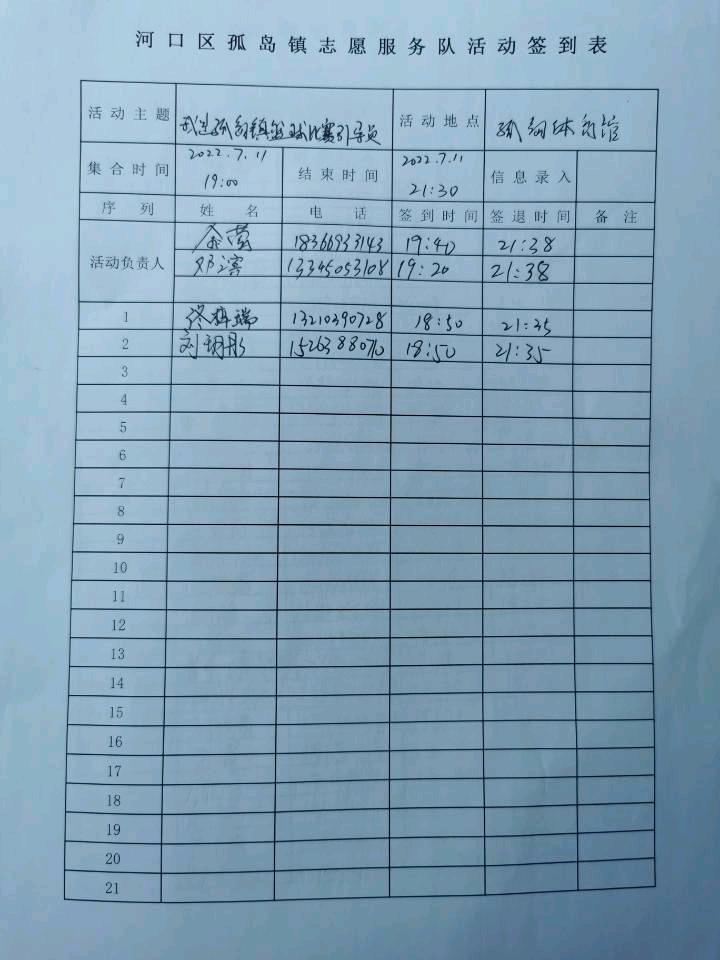 河口区孤岛镇志愿服务队活动签到表
活动主题 孤岛镇篮球比赛引导员 活动地点 孤岛体育馆
集合时间 2022.7.11 19:00 结束时间 2022.7.11 21:30 信息录入
序列 姓名 电话 签到时间 签退时间 备注
活动负责人
18366933143 19:40 21:38
邓滨 13345053108 19:20 21:38
1 佟梓瑞 13210390728 18:50 21:35
2 刘玥彤 1526388070 18:50 21:35
3
4
5
6
7
8
9
10
11
12
13
14
15
16
17
18
19
20
21